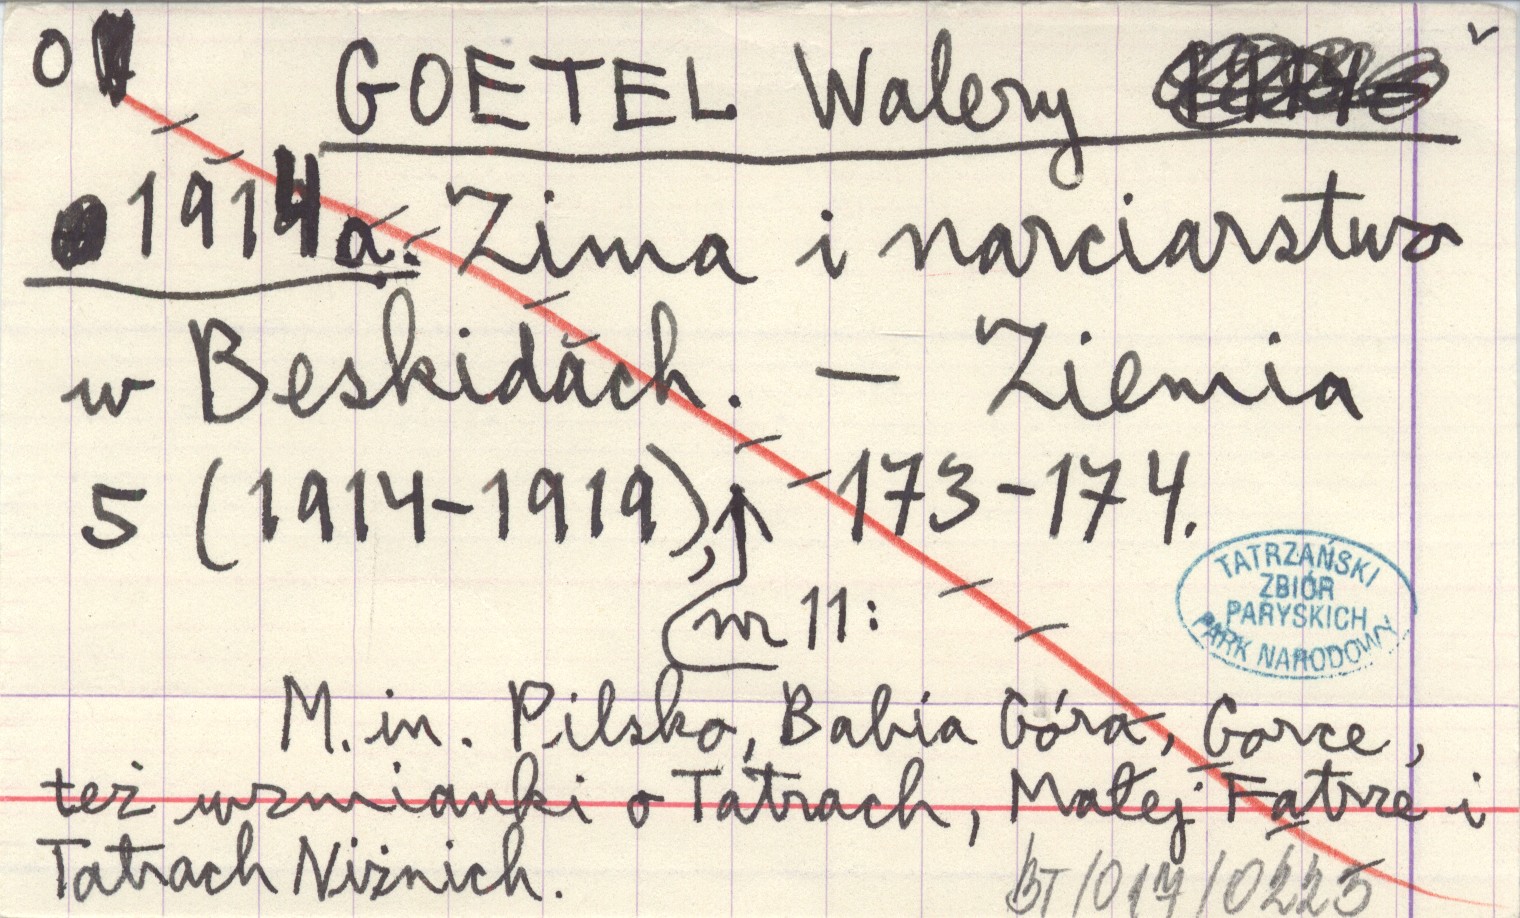 o GOETEL Walery
1914a: Zima i narciarstwo
w Beskidach. — Ziemia
5 (1914-1919), 173-174.
nr 11:
TATRZAŃSKI
ZBIÓR
PARYSKICH
PARK NARODOWY
M. in. Pilsko, Babia Góra, Gorce,
też wzmianki o Tatrach, Małej Fatrze i
Tatrach Niżnich.
BT/017/0225